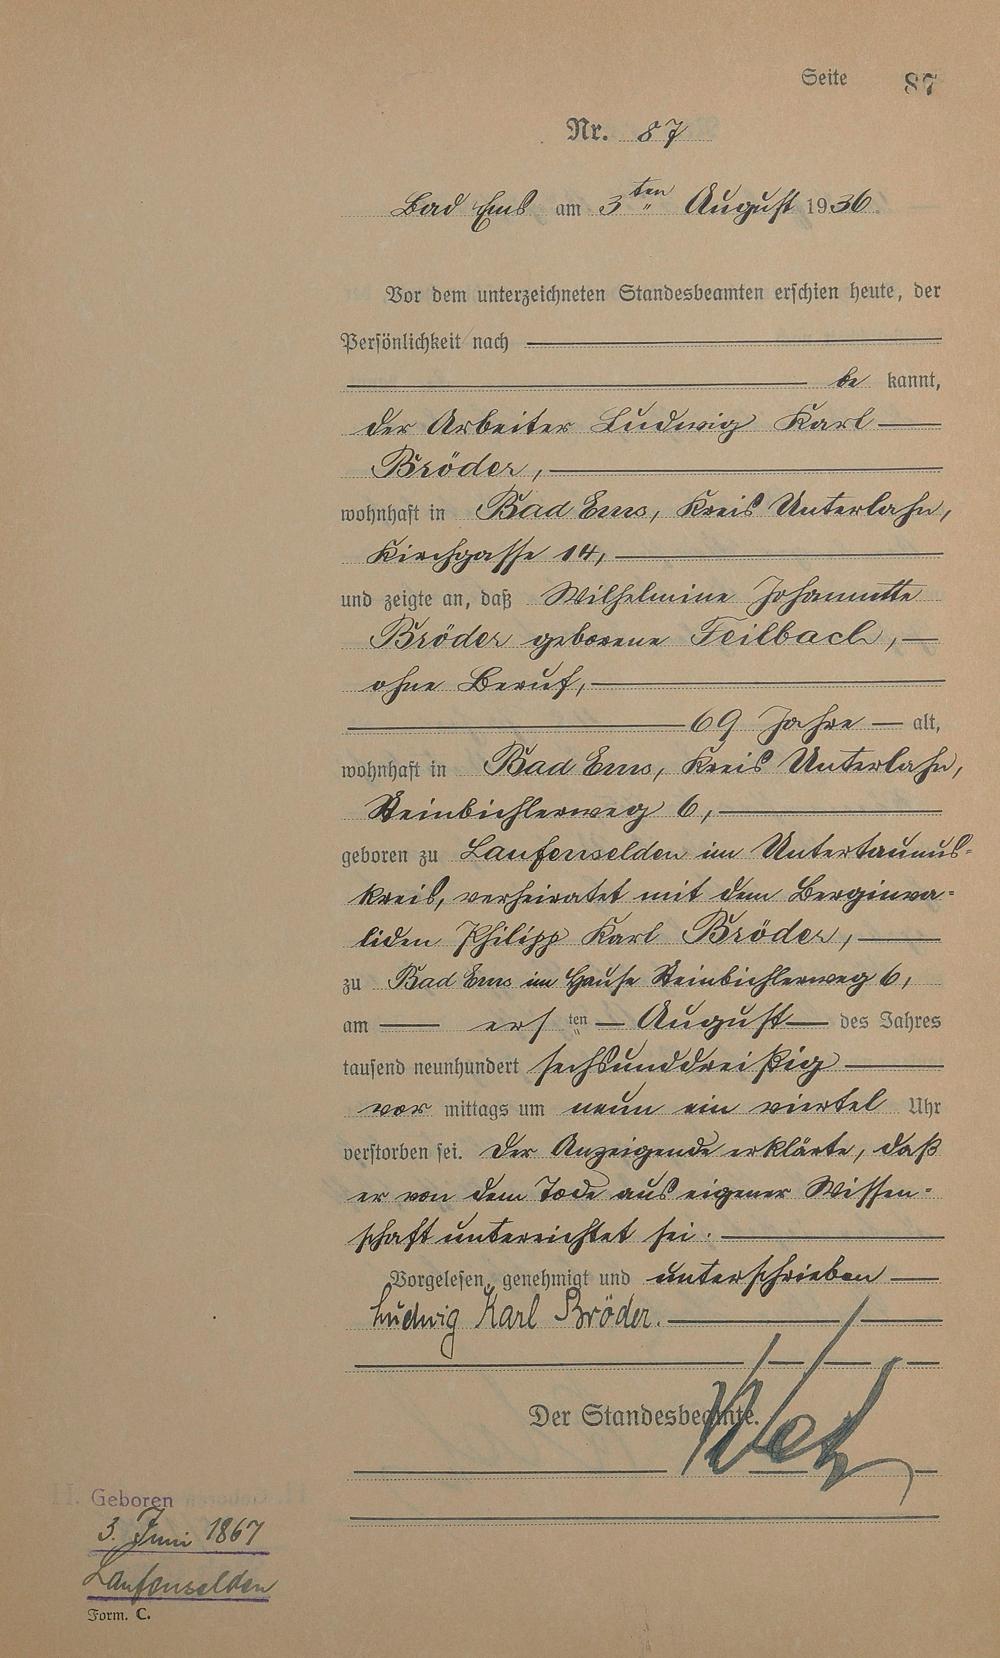 Seite 87
Nr. 87
Bad Ems am 3ten August 1936.
Vor dem unterzeichneten Standesbeamten erschien heute, der
Persönlichkeit nach
be kannt,
der Arbeiter Ludwig Karl
Bröder,
wohnhaft in Bad Ems, Kreis Unterlahn,
Kirchgasse 14,
und zeigte an, daß Wilhelmine Johannette
Bröder geborene Feilbach,
ohne Beruf,
69 Jahre alt,
wohnhaft in Bad Ems, Kreis Unterlahn,
Steinbichlerweg 6,
geboren zu Laufenselden im Untertaunus-
kreis, verheiratet mit dem Berginva-
liden Philipp Karl Bröder,
zu Bad Ems im Hause Steinbichlerweg 6,
am ersten August des Jahres
tausend neunhundert sechsunddreißig
vor mittags um neun ein viertel Uhr
verstorben sei. Der Anzeigende erklärte, daß
er von dem Tode aus eigener Wissen-
schaft unterrichtet sei.
Vorgelesen, genehmigt und unterschrieben
Ludwig Karl Bröder.
Der Standesbeamte.
Geboren
3. Juni 1867
Laufenselden
Form. C.